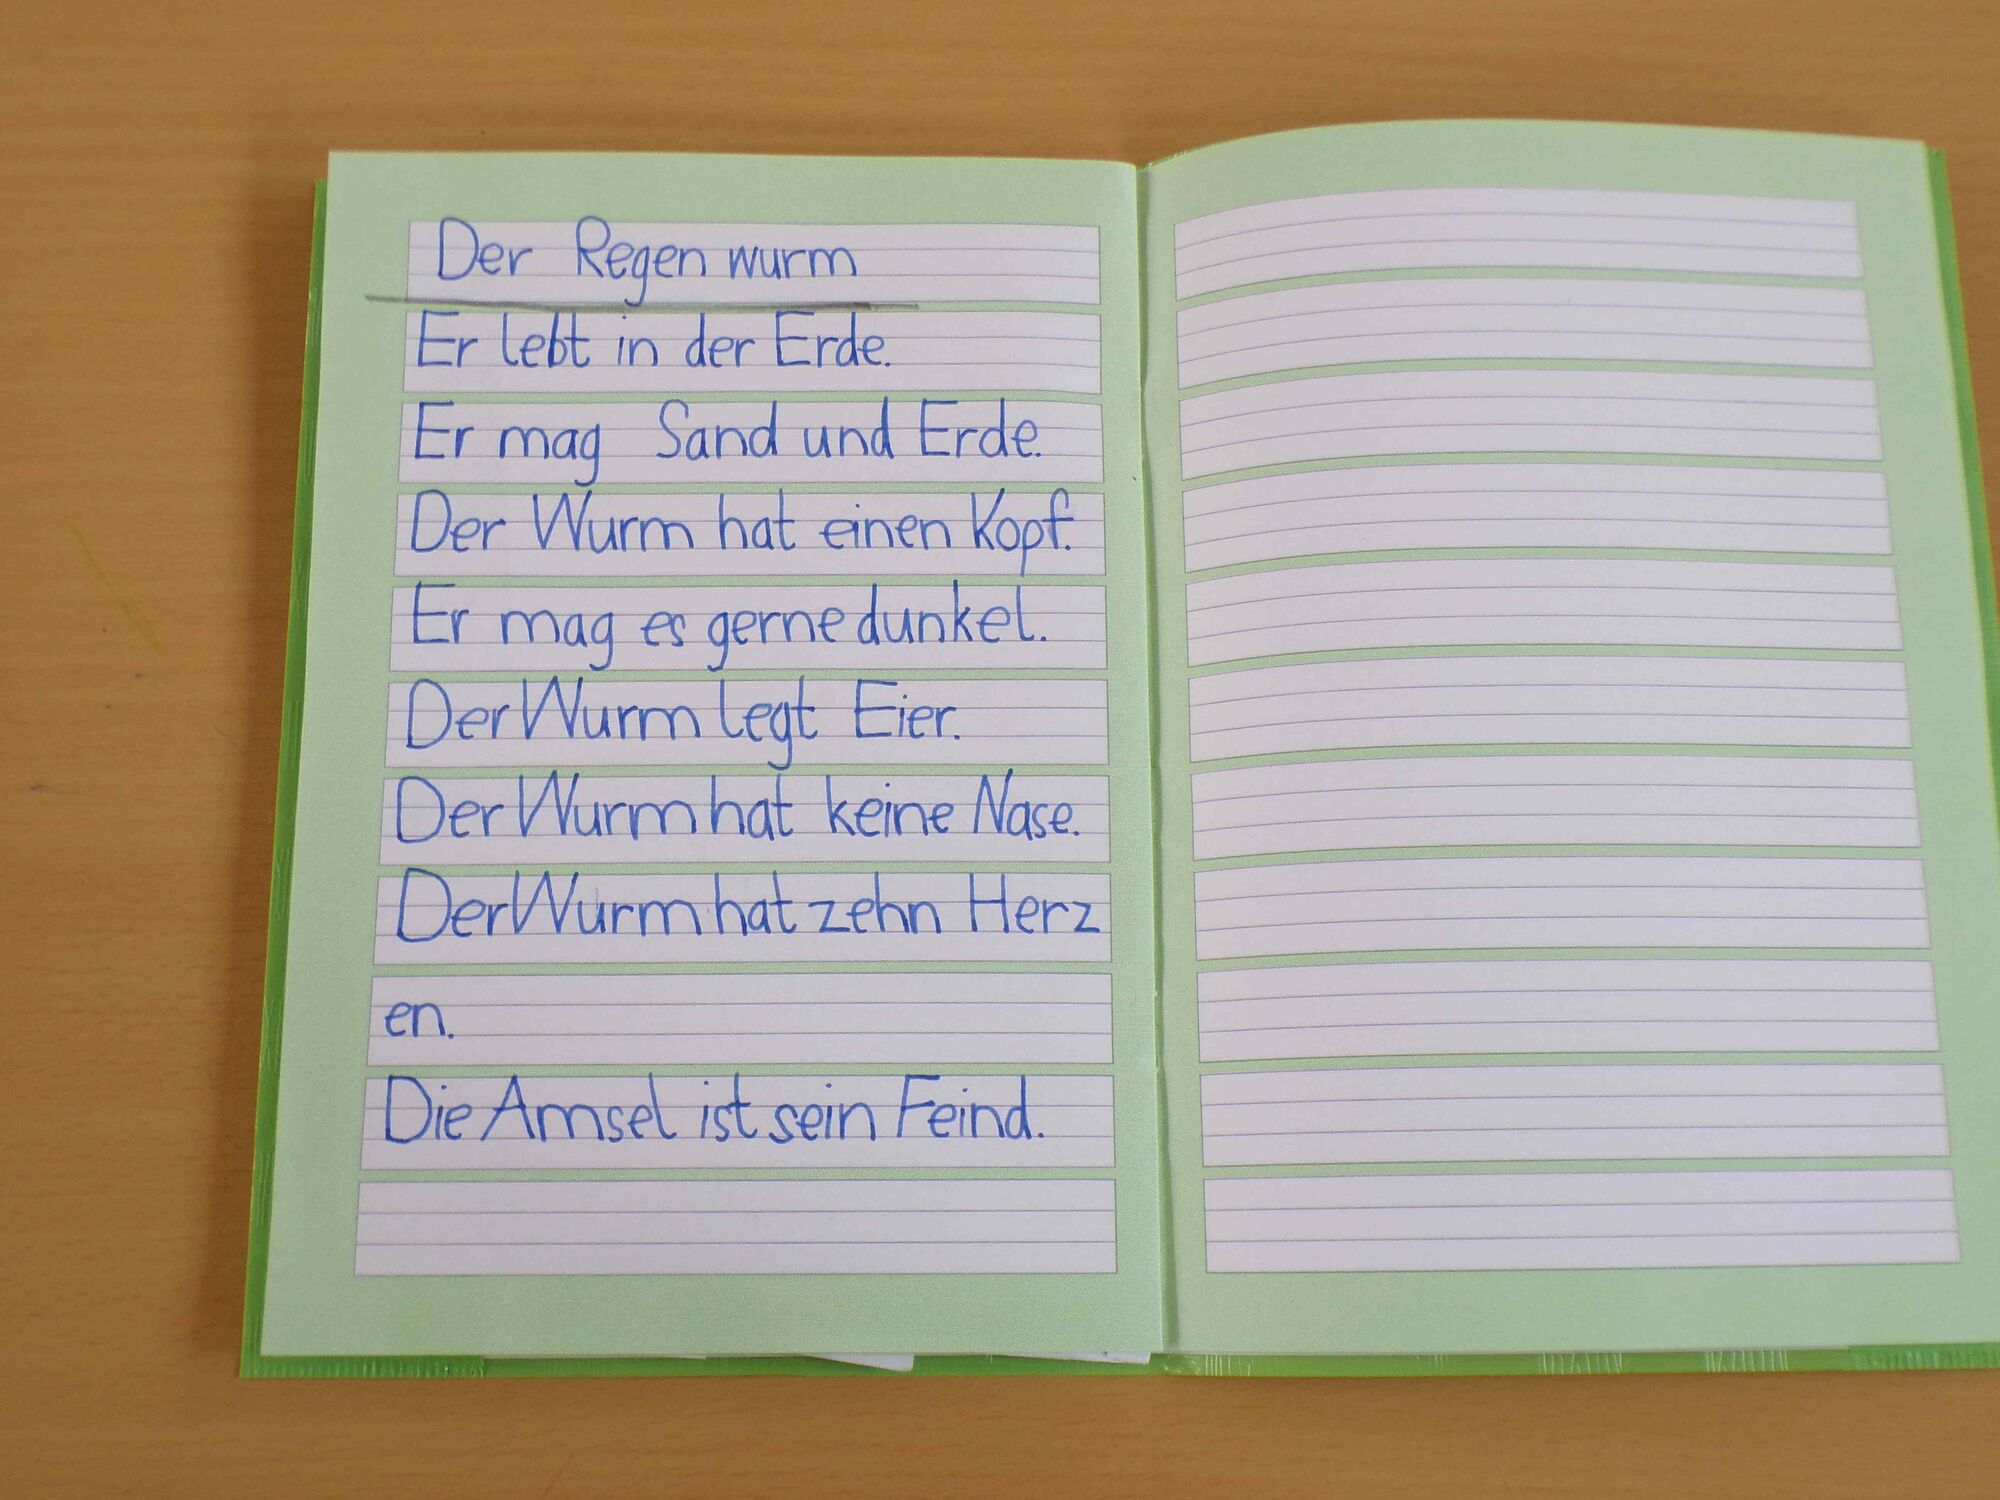 Der Regen wurm
Er lebt in der Erde.
Er mag Sand und Erde.
Der Wurm hat einen Kopf.
Er mag es gerne dunkel.
Der Wurm legt Eier.
Der Wurm hat keine Nase.
Der Wurm hat zehn Herz
en.
Die Amsel ist sein Feind.